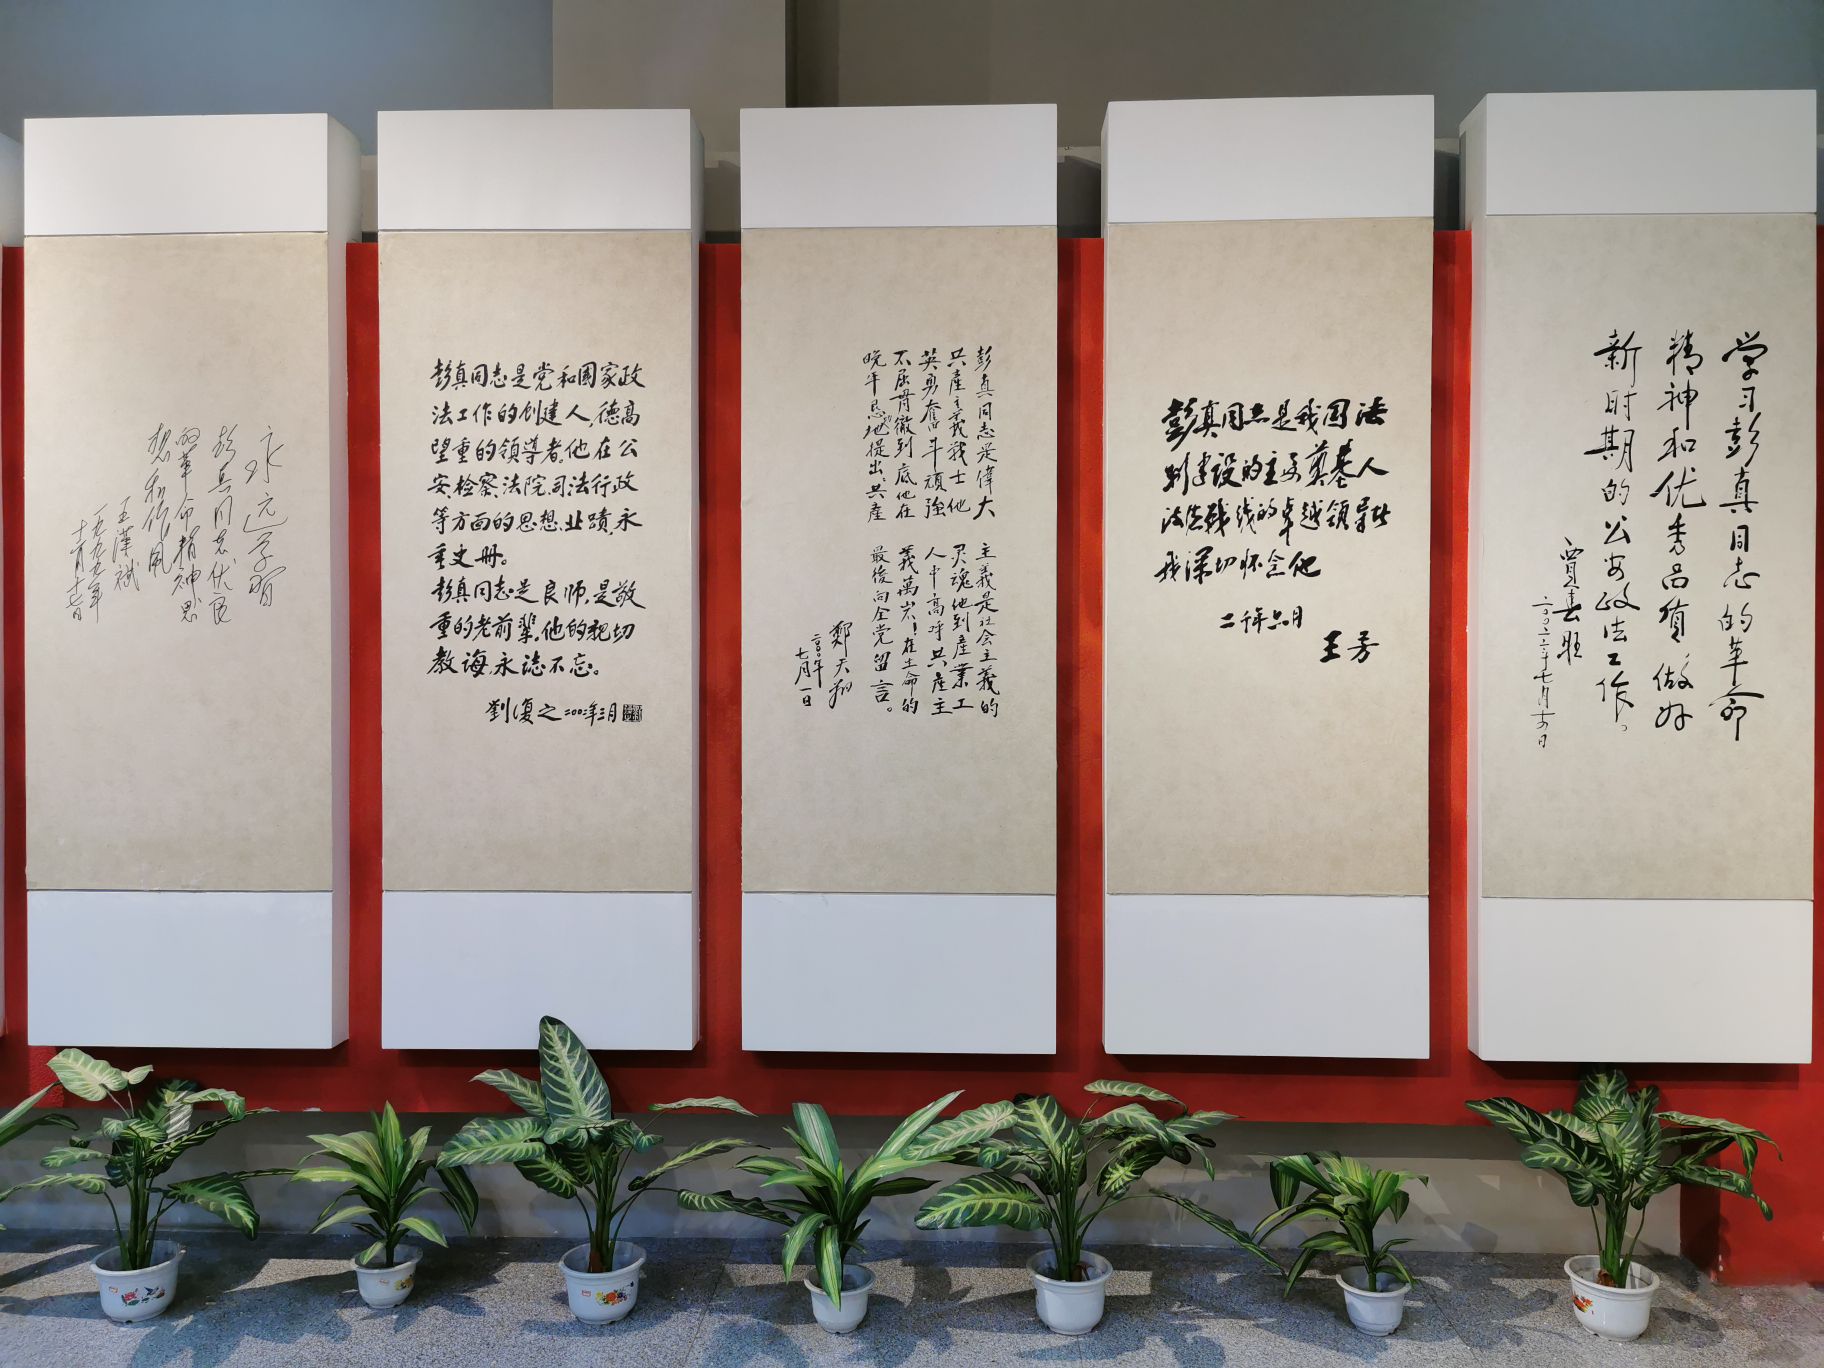 永远学習
彭真同志优良
的革命精神思
想和作風
王漢斌
一九九九年
十一月十七日
彭真同志是党和國家政
法工作的创建人,德高
望重的领导者。他在公
安、检察、法院、司法行政
等方面的思想、业蹟,永
垂史册。
彭真同志是良师,是敬
重的老前辈。他的親切
教诲,永誌不忘。
劉復之 二〇〇二年三月
彭真同志是偉大
共產主義戰士 他
英勇奮斗頑強
不屈貫徹到底他在
晚年息地提出:共產
主義是社会主義的
灵魂他到產業工
人中高呼共產主
義萬岁!在生命的
最後向全党留言。
鄭天翔
二〇〇〇年
七月一日
彭真同志是我国法
制建设的主要奠基人
法律战线的卓越领导者
我深切怀念他
二千年六月
王芳
学习彭真同志的革命
精神和优秀品質,做好
新时期的公安政法工作。
賈春旺
二〇〇二年七月十五日